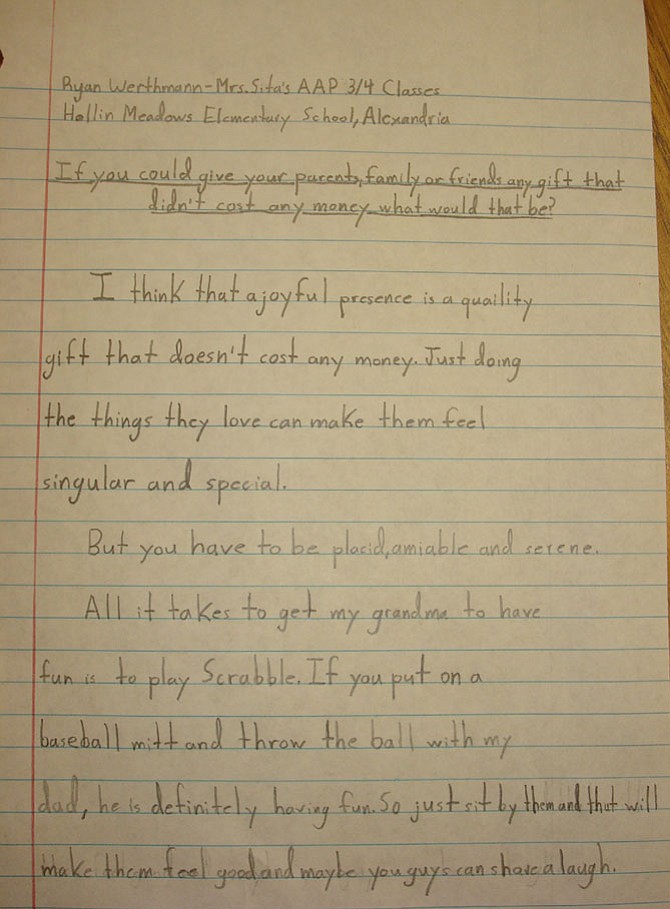 Ryan Werthmann-Mrs.Sita's AAP 3/4 Classes
Hollin Meadows Elementary School, Alexandria
If you could give your parents, family or friends any gift that
didn't cost any money what would that be?
I think that a joyful presence is a quaility
gift that doesn't cost any money. Just doing
the things they love can make them feel
singular and special.
But you have to be placid, amiable and serene.
All it takes to get my grandma to have
fun is to play Scrabble. If you put on a
baseball mitt and throw the ball with my
dad, he is definitely having fun. So just sit by them and that will
make them feel good and maybe you guys can share a laugh.